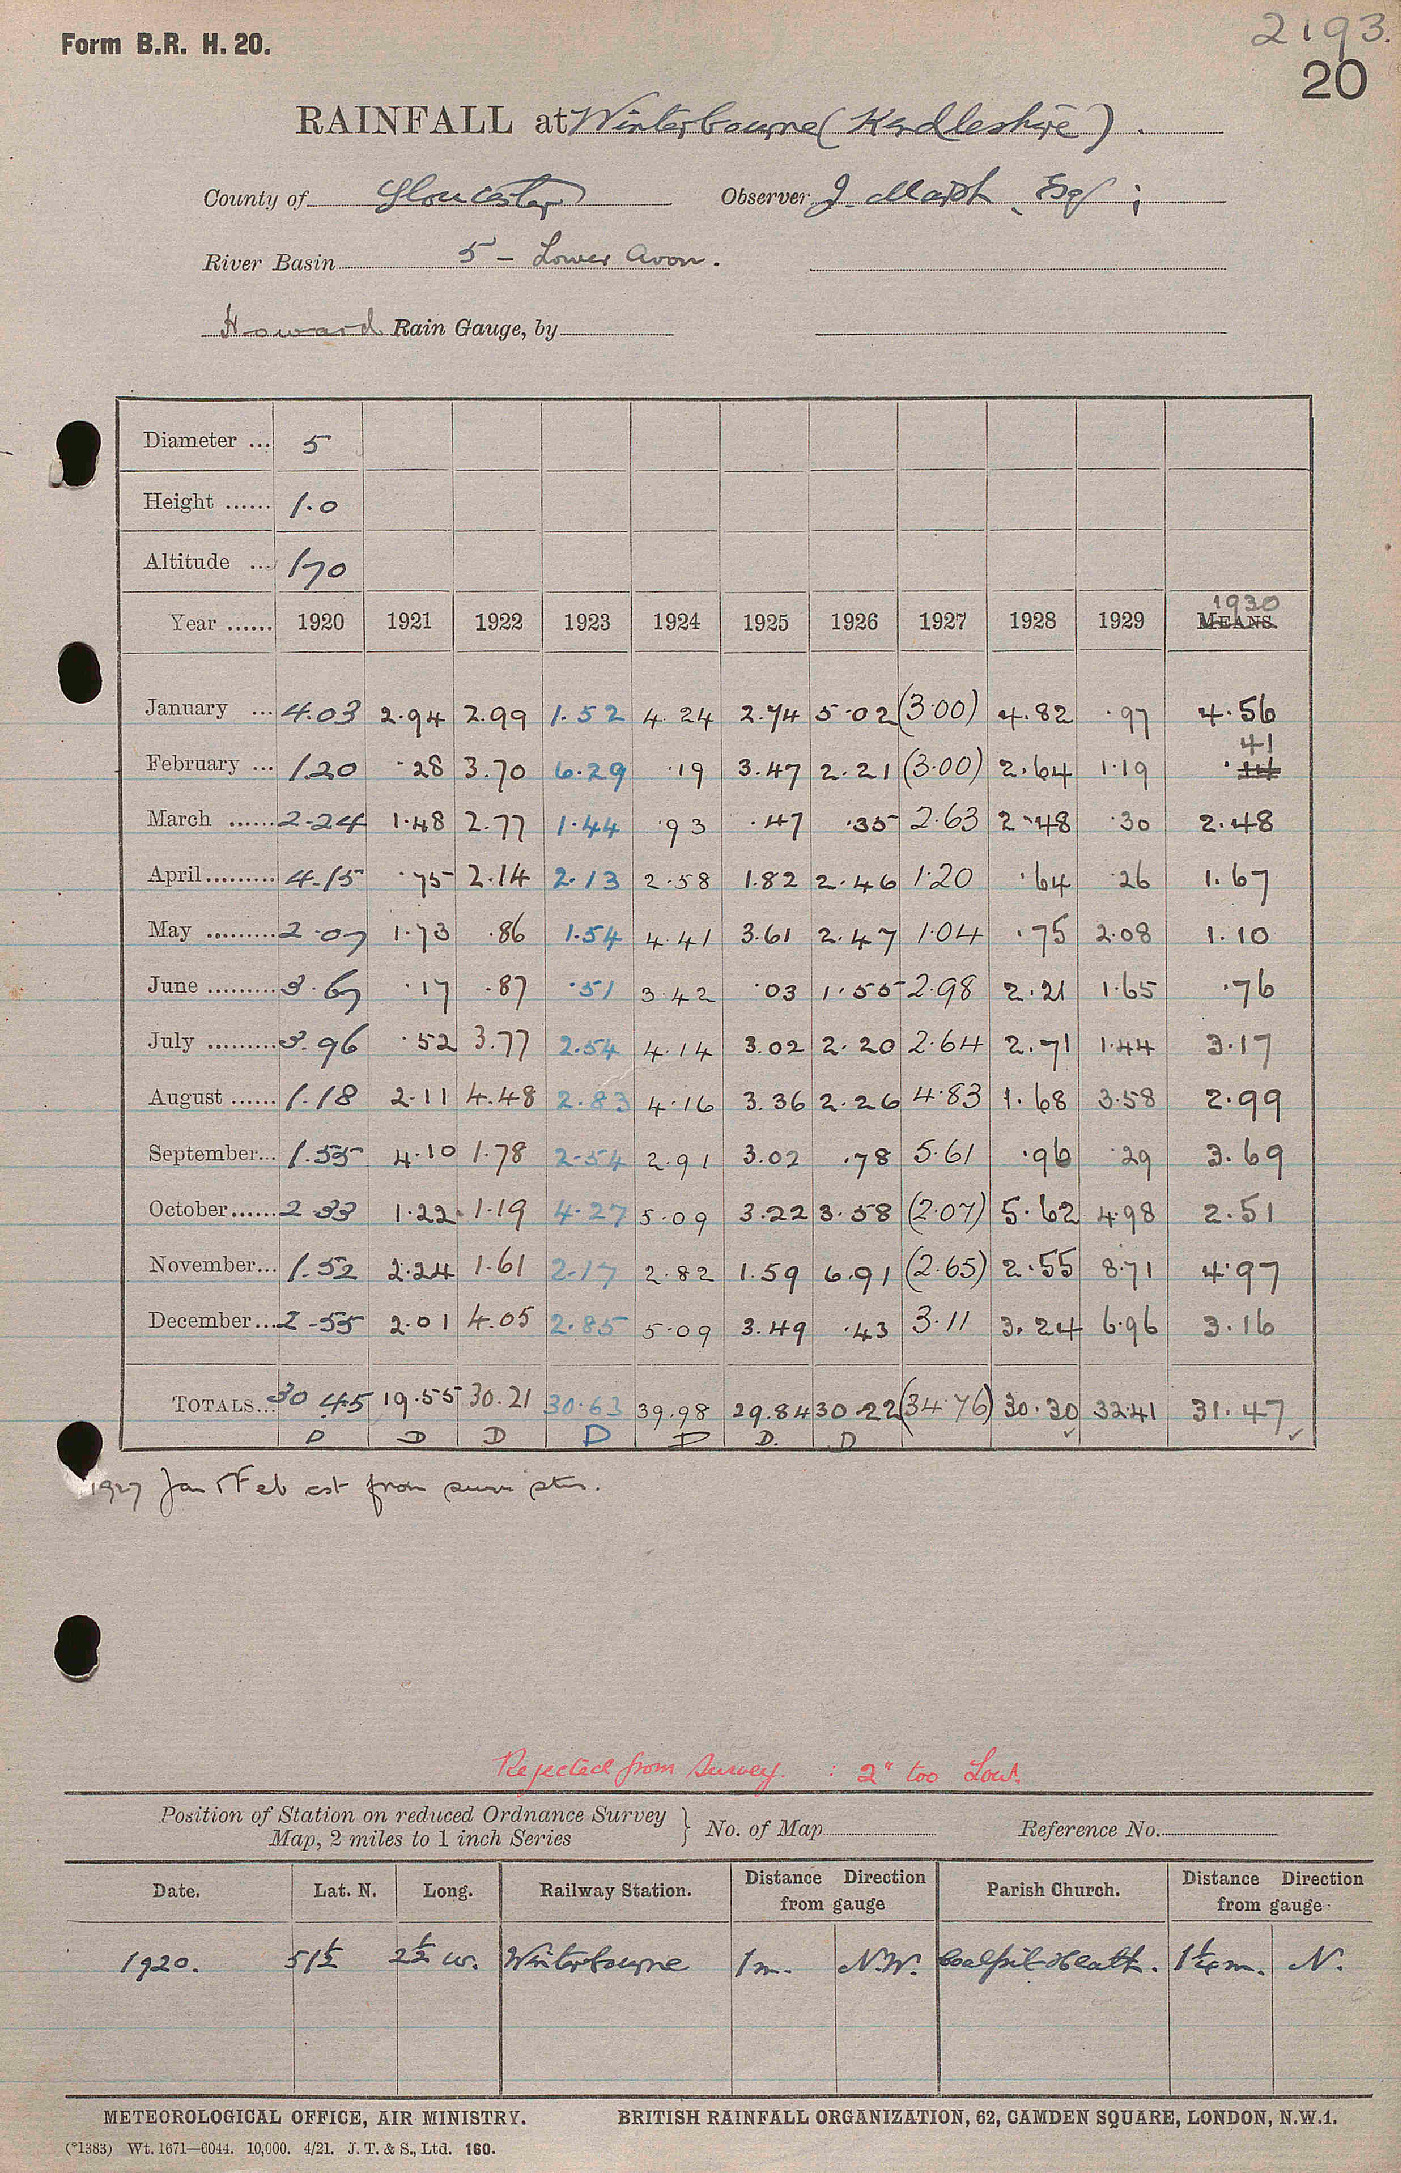 Form B.R. H. 20.
2193.
20
RAINFALL at Winterbourne (Kendleshire).
County of Gloucester Observer J. Marsh, Esq;
River Basin 5 - Lower Avon.
Howard Rain Gauge, by
Diameter ... 5
Height ...... 1.0
Altitude ... 170
1930
Year ...... 1920 1921 1922 1923 1924 1925 1926 1927 1928 1929 MEANS.
January ... 4.03 2.94 2.99 1.52 4.24 2.74 5.02 (3.00) 4.82 .97 4.56
41
February ... 1.20 .28 3.70 6.29 .19 3.47 2.21 (3.00) 2.64 1.19 .
March ...... 2.24 1.48 2.77 1.44 .93 .47 .35 2.63 2.48 .30 2.48
April ......... 4.15 .75 2.14 2.13 2.58 1.82 2.46 1.20 .64 .26 1.67
May ......... 2.07 1.73 .86 1.54 4.41 3.61 2.47 1.04 .75 2.08 1.10
June ......... 3.67 .17 .87 .51 3.42 .03 1.55 2.98 2.21 1.65 .76
July ......... 3.96 .52 3.77 2.54 4.14 3.02 2.20 2.64 2.71 1.44 3.17
August ...... 1.18 2.11 4.48 2.83 4.16 3.36 2.26 4.83 1.68 3.58 2.99
September... 1.55 4.10 1.78 2.54 2.91 3.02 .78 5.61 .96 .29 3.69
October...... 2.33 1.22 1.19 4.27 5.09 3.22 3.58 (2.07) 5.62 4.98 2.51
November... 1.52 2.24 1.61 2.17 2.82 1.59 6.91 (2.65) 2.55 8.71 4.97
December... 2.55 2.01 4.05 2.85 5.09 3.49 .43 3.11 3.24 6.96 3.16
TOTALS... 30.45 19.55 30.21 30.63 39.98 29.84 30.22 (34.76) 30.30 32.41 31.47
D D D D D D. D
1927 Jan & Feb est from surr stns.
Rejected from Survey. : 2" too Low.
Position of Station on reduced Ordnance Survey
Map, 2 miles to 1 inch Series } No. of Map Reference No.
Date. Lat. N. Long. Railway Station. Distance Direction from gauge Parish Church. Distance Direction from gauge.
1920. 51½ 2½ W. Winterbourne 1m. N.W. Coalpit Heath. 1¼m. N.
METEOROLOGICAL OFFICE, AIR MINISTRY. BRITISH RAINFALL ORGANIZATION, 62, CAMDEN SQUARE, LONDON, N.W.1.
(*1383) Wt. 1671—6044. 10,000. 4/21. J. T. & S., Ltd. 160.